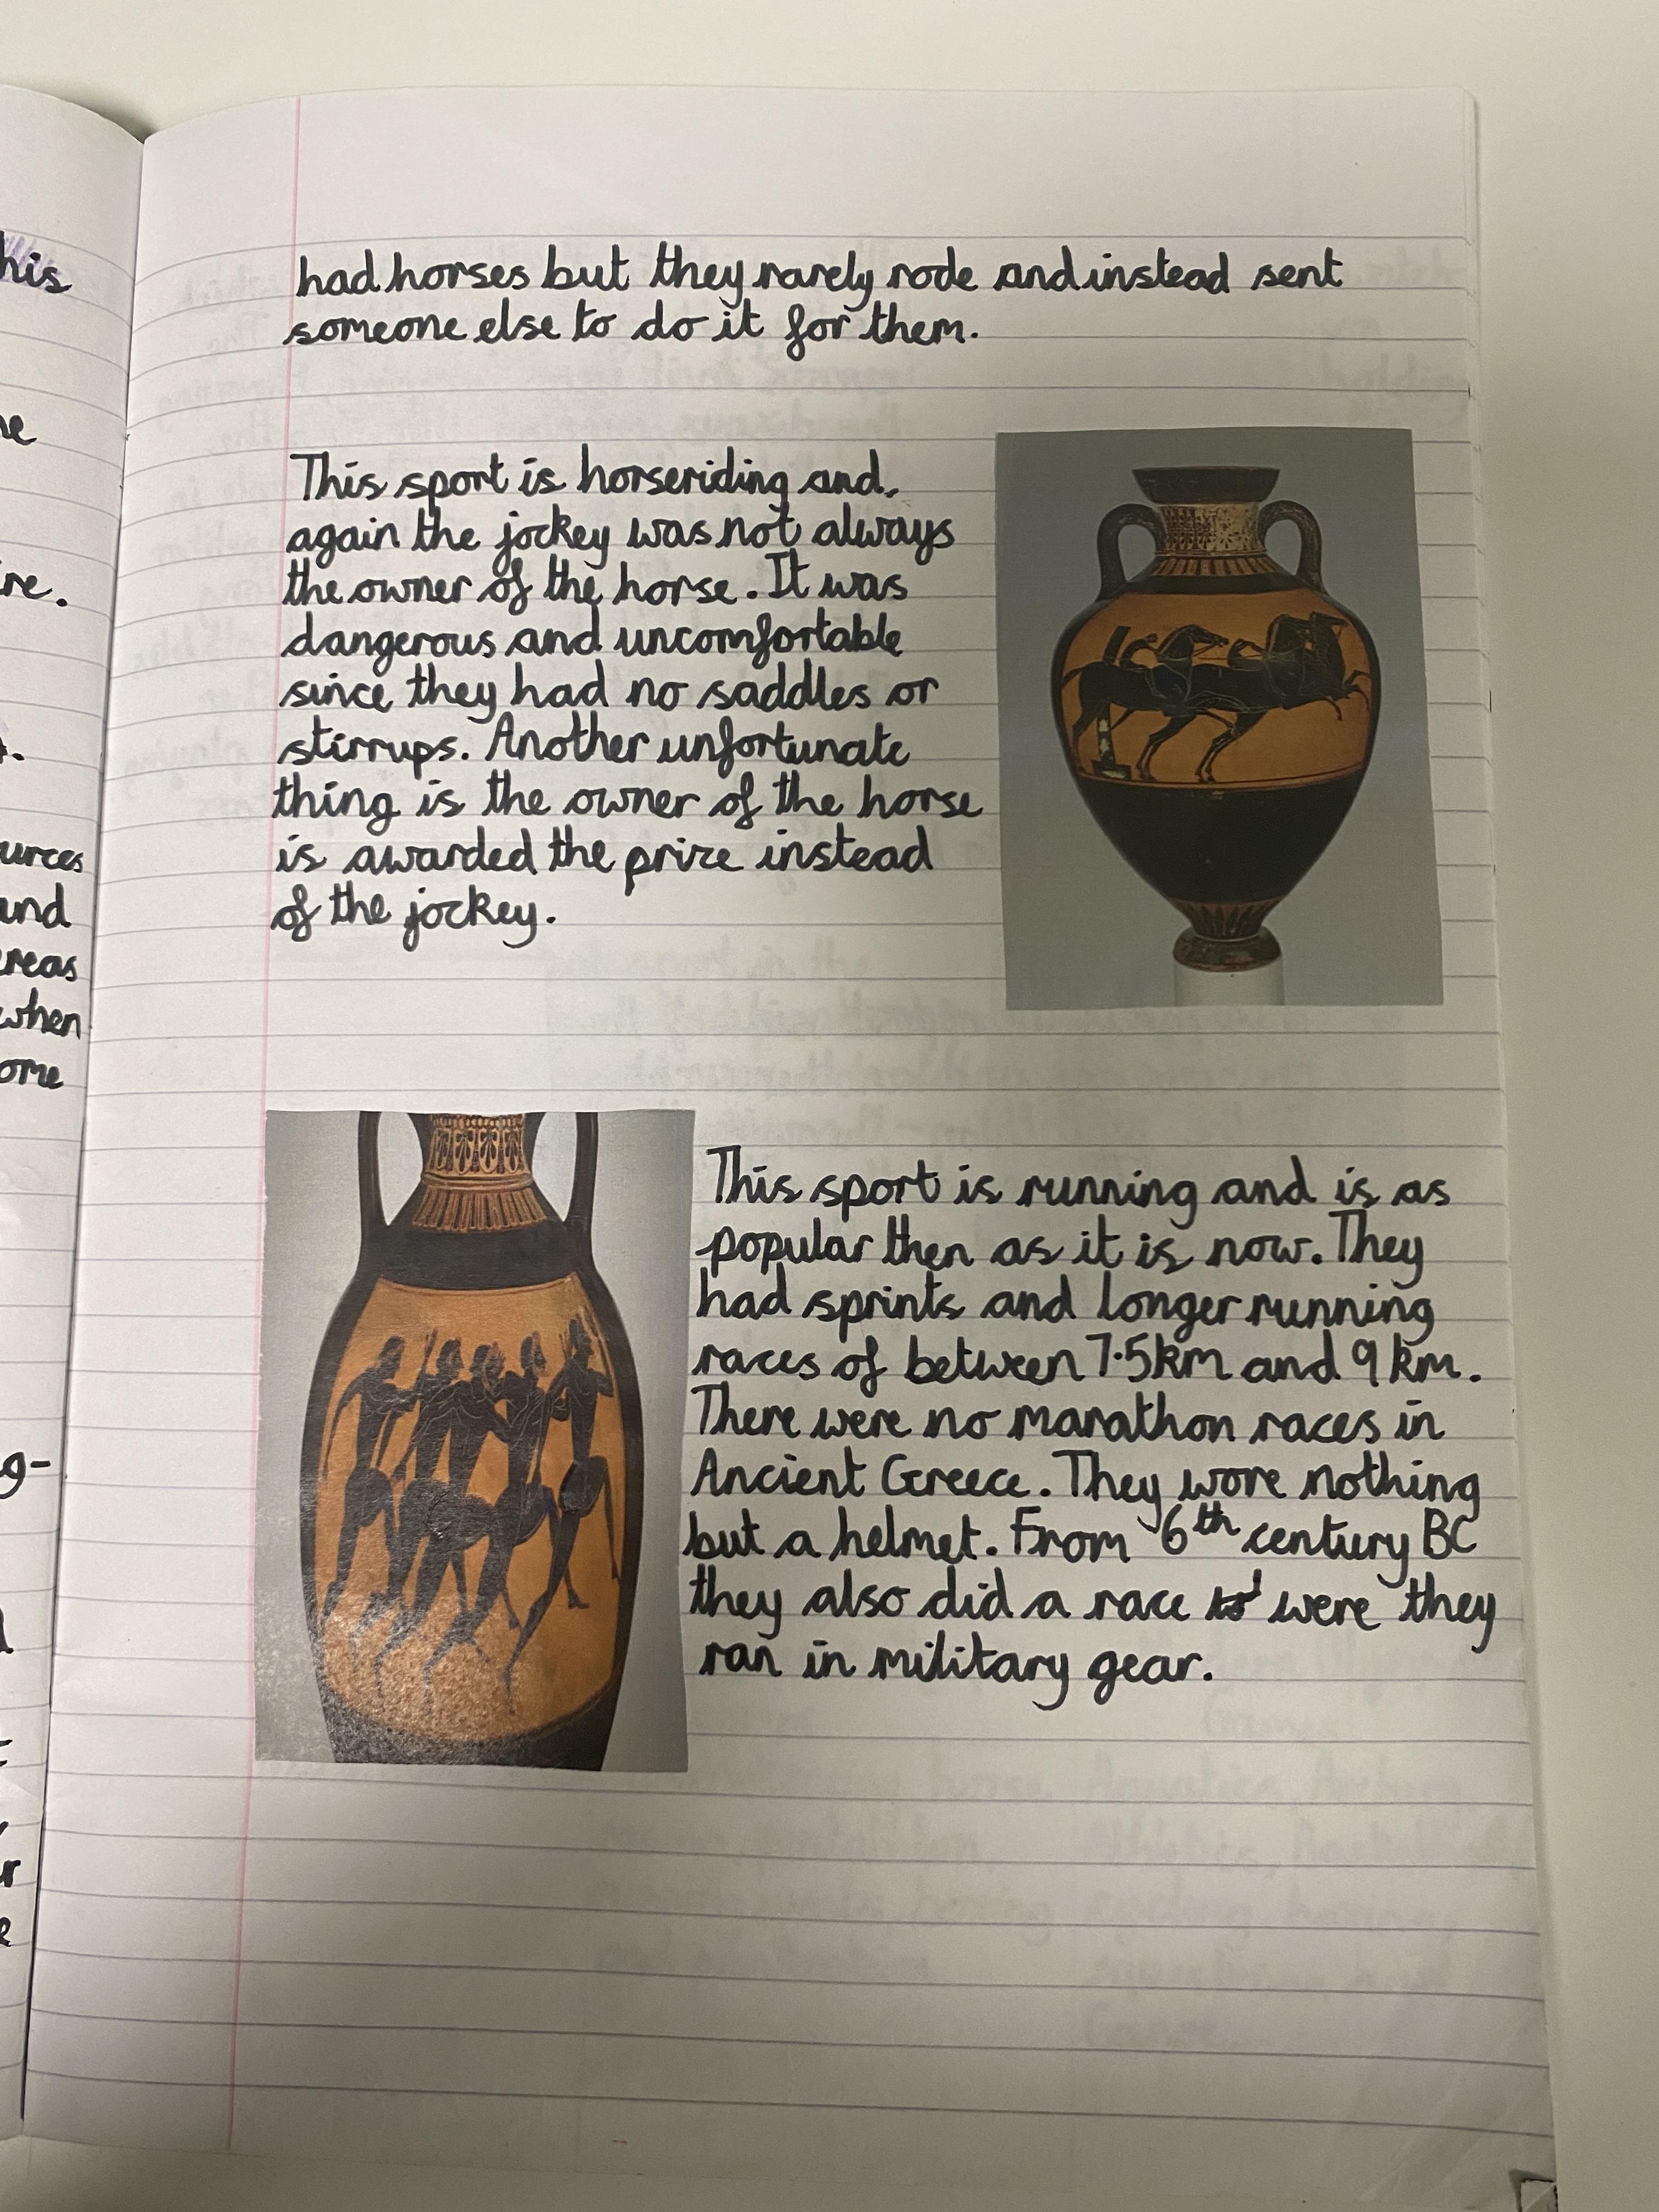 his
had horses but they rarely rode and instead sent
someone else to do it for them.
This sport is horseriding and,
again the jockey was not always
the owner of the horse. It was
dangerous and uncomfortable
since they had no saddles or
stirrups. Another unfortunate
thing is the owner of the horse
is awarded the prize instead
of the jockey.
urces
and
ereas
when
ome
This sport is running and is as
popular then as it is now. They
had sprints and longer running
races of between 7.5km and 9 km.
There were no marathon races in
Ancient Greece. They wore nothing
but a helmet. From 6th century BC
they also did a race were they
ran in military gear.